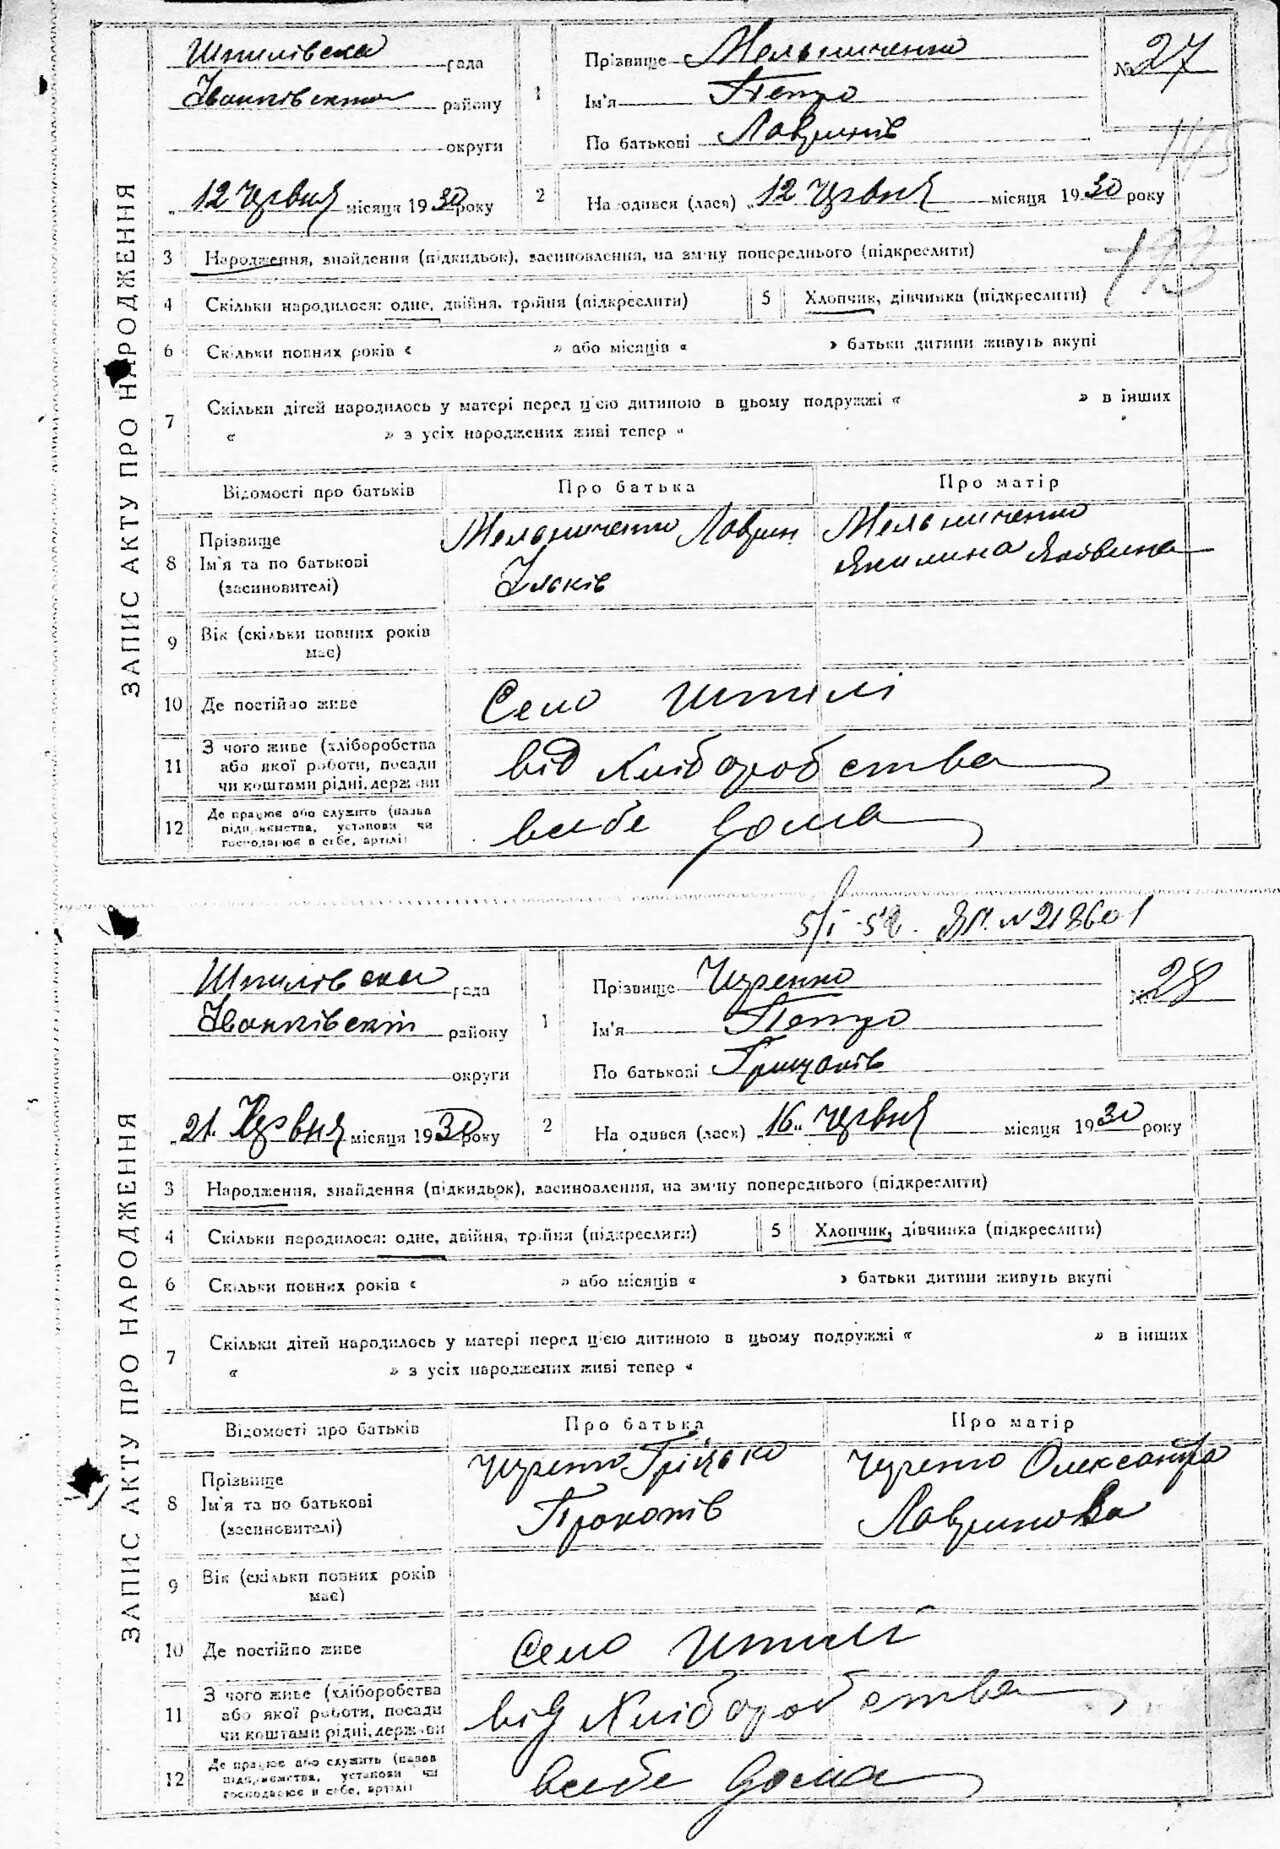 ЗАПИС АКТУ ПРО НАРОДЖЕННЯ
Шпилівска рада
Іванківського району
округи
„12 Червня місяця 1930 року
1 Прізвище Мельниченко
Ім'я Петро
По батькові Лавринів
№ 27
145
193
2 Народився (лася) „12 Червня місяця 1930 року
3 Народження, знайдення (підкидьок), засиновлення, на зміну попереднього (підкреслити)
4 Скільки народилося: одне, двійня, трійня (підкреслити)
5 Хлопчик, дівчинка (підкреслити)
6 Скільки повних років « » або місяців « » батьки дитини живуть вкупі
7 Скільки дітей народилось у матері перед цією дитиною в цьому подружжі « » в інших
« » з усіх народжених живі тепер «
Відомості про батьків Про батька Про матір
8 Прізвище
Ім'я та по батькові
(засиновителі)
Мельниченко Лаврин
Ільків
Мельниченко
Якилина Яковина
9 Вік (скільки повних років
має)
10 Де постійно живе Село Шпилі
11 З чого живе (хліборобства
або якої роботи, посади
чи коштами рідні, держави
від Хліборобства
12 Де працює або служить (назва
підприємства, установи чи
господарює в себе, артілі)
всебе дома
5/I-52. ЗП. N 218601
ЗАПИС АКТУ ПРО НАРОДЖЕННЯ
Шпилівска рада
Іванківський району
округи
„21„ Червня місяця 1930 року
1 Прізвище Цуренко
Ім'я Петро
По батькові Грицьків
№ 28
2 Народився (лася) „16„ Червня місяця 1930 року
3 Народження, знайдення (підкидьок), засиновлення, на зміну попереднього (підкреслити)
4 Скільки народилося: одне, двійня, трійня (підкреслити)
5 Хлопчик, дівчинка (підкреслити)
6 Скільки повних років « » або місяців « » батьки дитини живуть вкупі
7 Скільки дітей народилось у матері перед цією дитиною в цьому подружжі « » в інших
« » з усіх народжених живі тепер «
Відомості про батьків Про батька Про матір
8 Прізвище
Ім'я та по батькові
(засиновителі)
Цуренко Гріцько
Прокопів
Цуренко Олександра
Лавринова
9 Вік (скільки повних років
має)
10 Де постійно живе Село Шпилі
11 З чого живе (хліборобства
або якої роботи, посади
чи коштами рідні, держави
від Хліборобства
12 Де працює або служить (назва
підприємства, установи чи
господарює в себе, артілі)
всебе дома